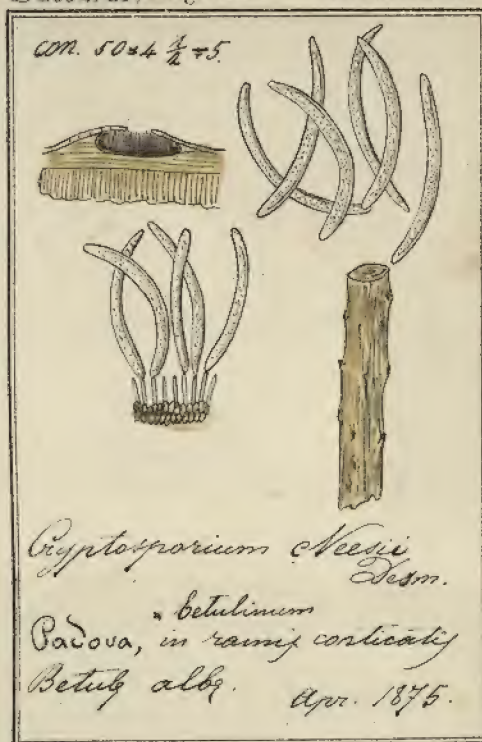 con. 50=4 ½=5.
Cryptosporium Neesii
Desm.
* betulinum
Padova, in ramis corticatis
Betulę albę.
Apr. 1875.